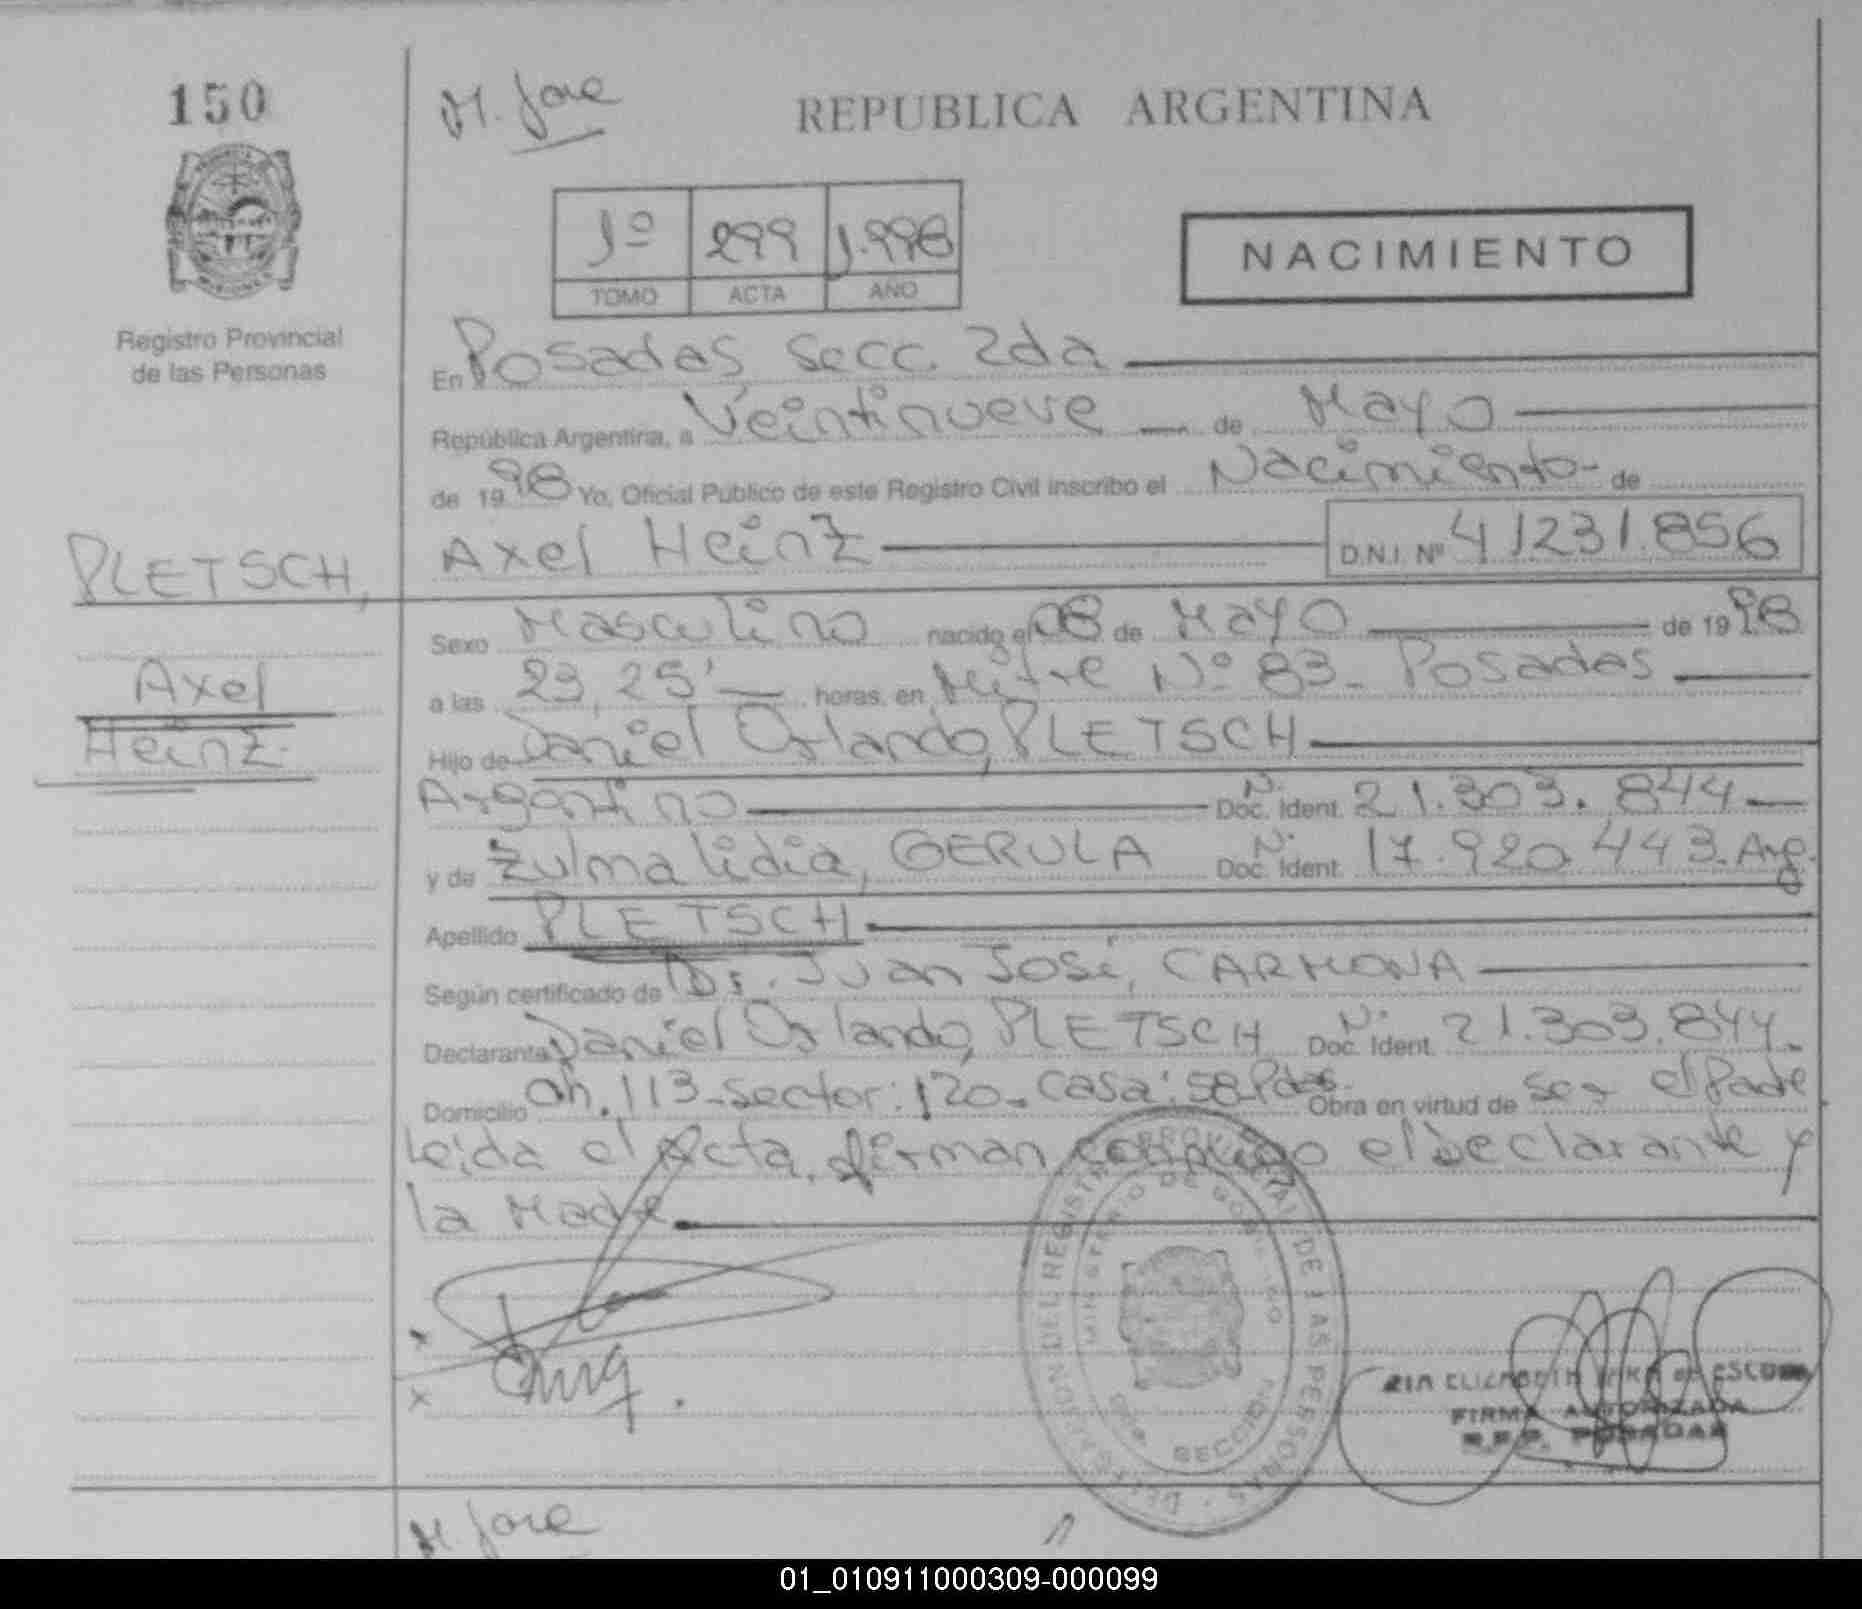 150
M. Jose
REPUBLICA ARGENTINA
1º 299 1.998
TOMO ACTA AÑO
NACIMIENTO
Registro Provincial
de las Personas
En Posadas Secc. 2da
República Argentina, a Veintinueve de Mayo
de 1998 Yo, Oficial Público de este Registro Civil inscribo el Nacimiento de
Axel Heinz D.N.I. Nº 41231.856
PLETSCH,
Axel
Heinz.
Sexo Masculino nacido el 08 de Mayo de 1998
a las 23,25' horas, en Mitre Nº 83- Posadas
Hijo de Daniel Orlando, PLETSCH
Argentino Doc. Ident. N. 21.303.844
y de Zulma Lidia, GERULA Doc. Ident. N. 17.920.443. Arg.
Apellido PLETSCH
Según certificado de Dr. Juan José, CARMONA
Declarante Daniel Orlando, PLETSCH Doc. Ident. N. 21.303.844
Domicilio Ch. 113-Sector: 120- Casa: 58-Pdas. Obra en virtud de ser el Padre
Leida el Acta, firman conmigo el Declarante y
la Madre
DELEGACION DEL REGISTRO PROVINCIAL DE LAS PERSONAS
MINISTERIO DE GOBIERNO
SECCION
FIRMA AUTORIZADA
R.P.P. POSADAS
M. Jose
01_010911000309-000099